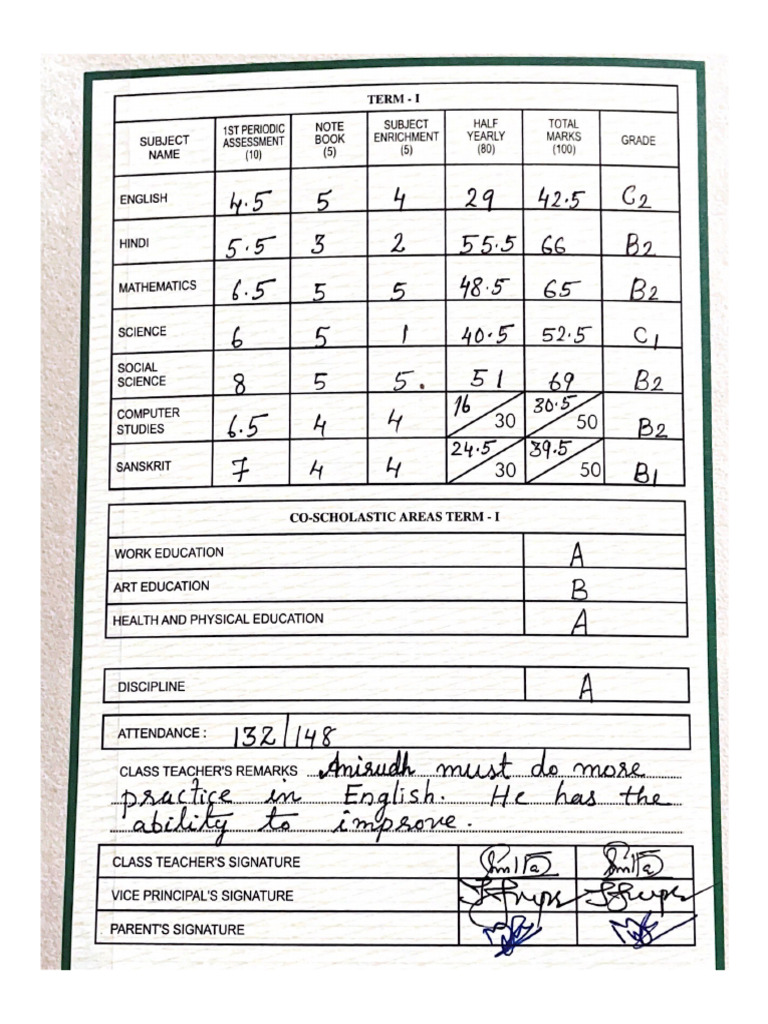 TERM - I
SUBJECT NAME 1ST PERIODIC ASSESSMENT (10) NOTE BOOK (5) SUBJECT ENRICHMENT (5) HALF YEARLY (80) TOTAL MARKS (100) GRADE
ENGLISH 4.5 5 4 29 42.5 C2
HINDI 5.5 3 2 55.5 66 B2
MATHEMATICS 6.5 5 5 48.5 65 B2
SCIENCE 6 5 1 40.5 52.5 C1
SOCIAL SCIENCE 8 5 5. 51 69 B2
COMPUTER STUDIES 6.5 4 4 16/30 30.5/50 B2
SANSKRIT 7 4 4 24.5/30 39.5/50 B1
CO-SCHOLASTIC AREAS TERM - I
WORK EDUCATION A
ART EDUCATION B
HEALTH AND PHYSICAL EDUCATION A
DISCIPLINE A
ATTENDANCE : 132/148
CLASS TEACHER'S REMARKS Anirudh must do more
practice in English. He has the
ability to improve.
CLASS TEACHER'S SIGNATURE
VICE PRINCIPAL'S SIGNATURE
PARENT'S SIGNATURE